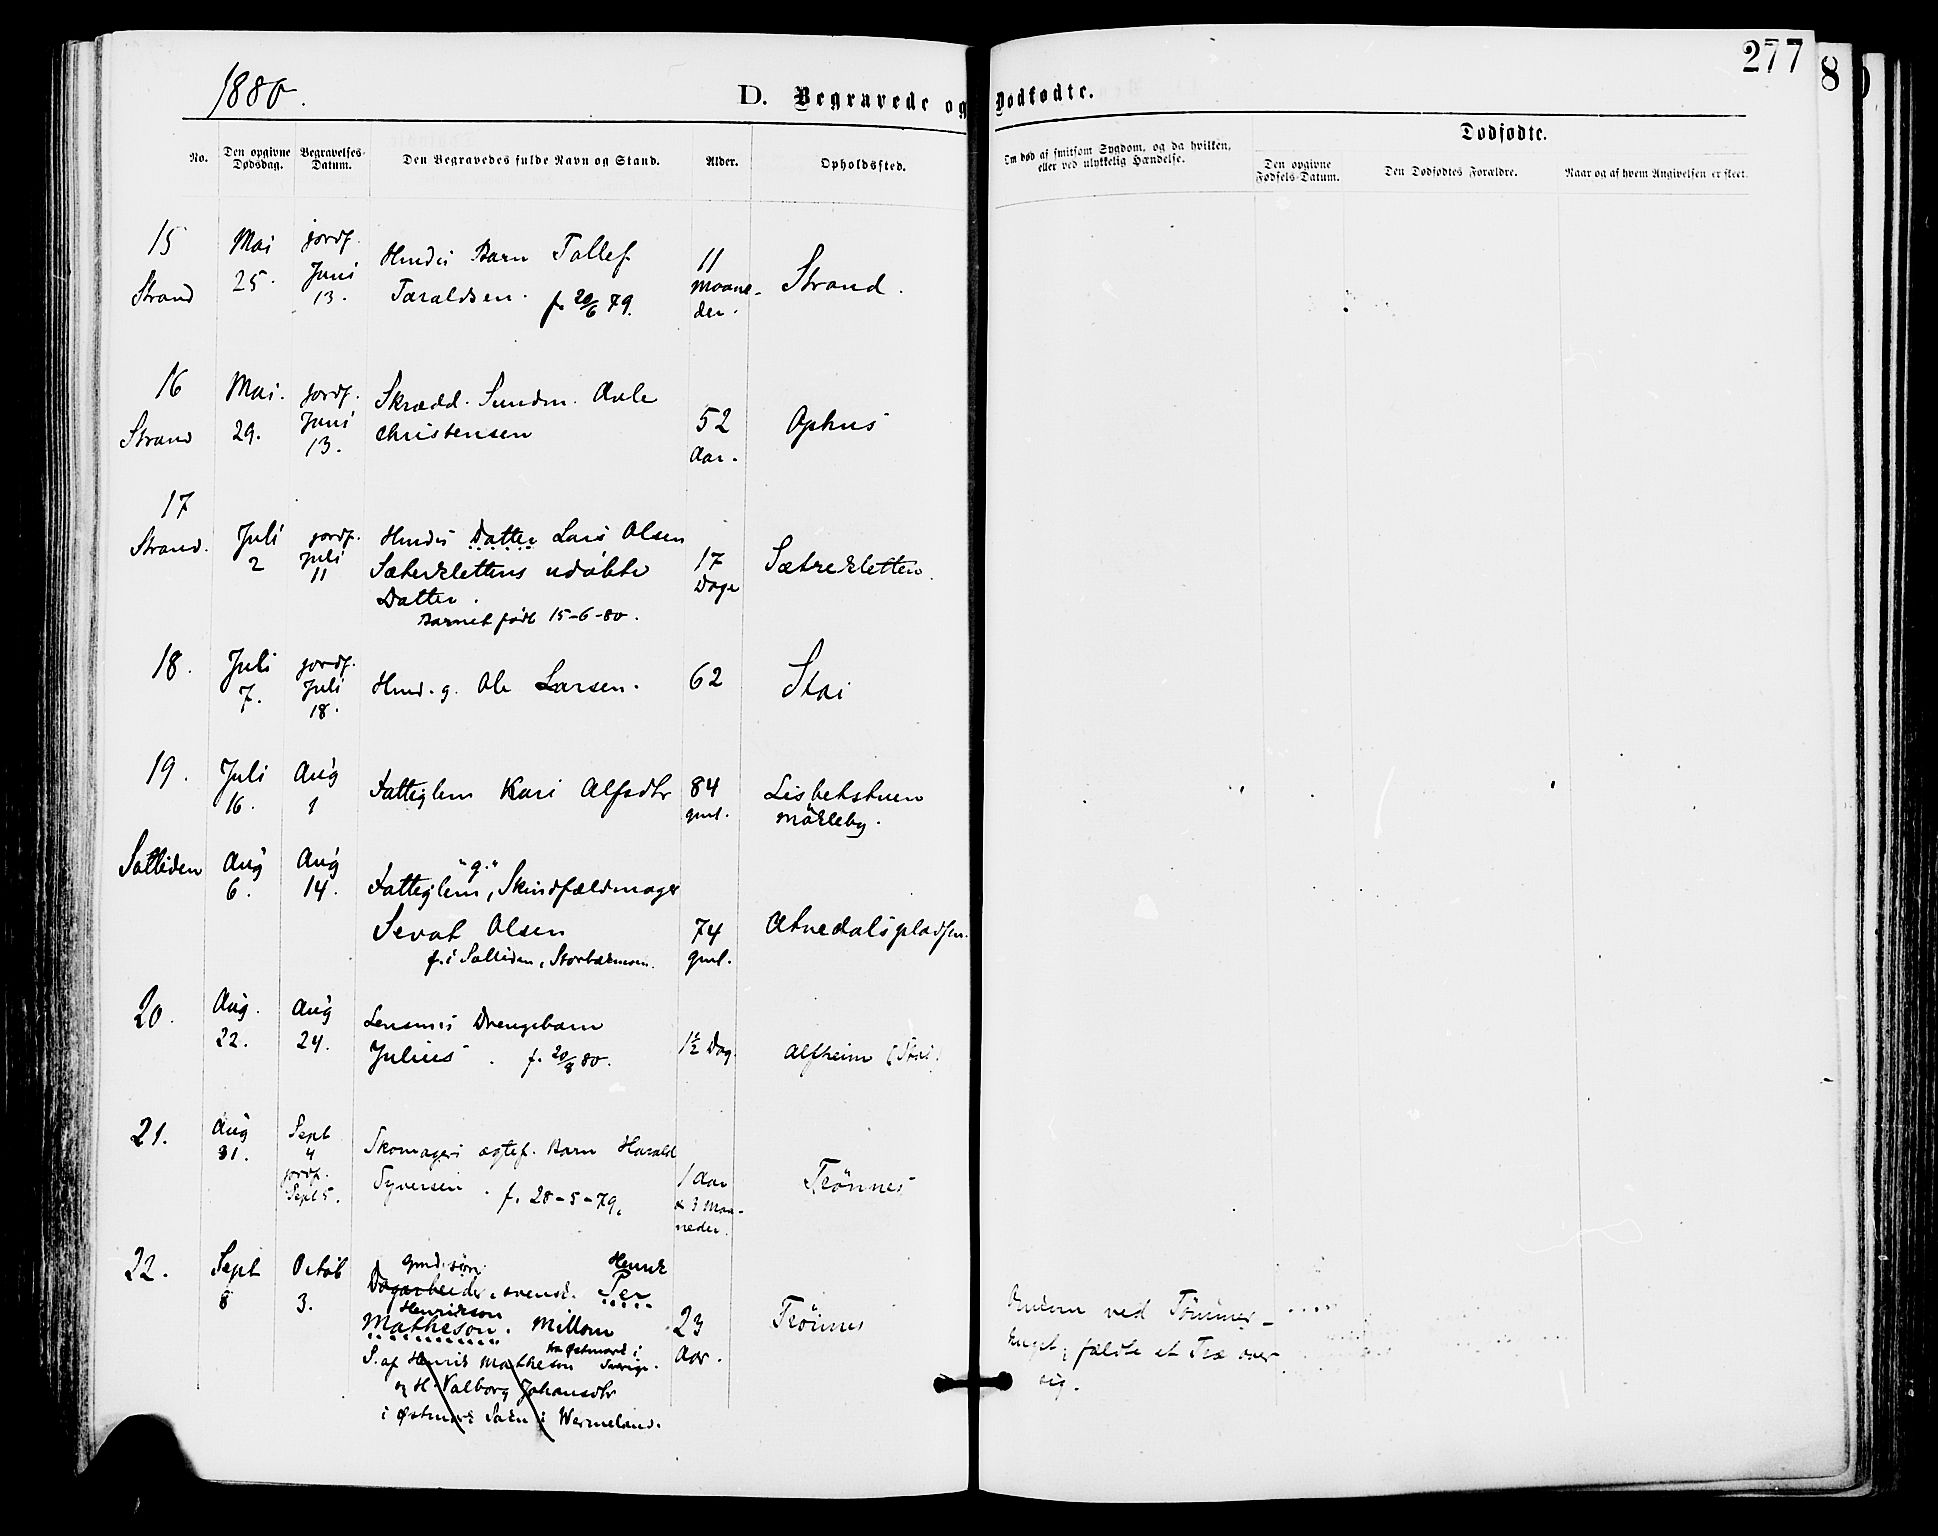 277
8
1880.
D. Begravede og Dødfødte.
No.
Den opgivne Dødsdag.
Begravelses-Datum.
Den Begravedes fulde Navn og Stand.
Alder.
Opholdssted.
Om død af smitsom Sygdom, og da hvilken, eller ved ulykkelig Hændelse.
Dødfødte.
Den opgivne Fødsels-Datum.
Den Dødfødtes Forældre.
Naar og af hvem Angivelsen er skeet.
15
Strand
Mai
25.
jordf.
Juni
13.
Husm. Barn Tollef
Taraldsen. f. 20/6 79.
11
Maane-
der.
Strand.
16
Strand
Mai.
29.
jordf.
Juni
13.
Skrædd.
Christensen
52
Aar.
Ophus
17
Strand.
Juli
2
jordf.
Juli
11
Datter Lars Olsen
Sæterklettens udøbte
Datter.
Barnet født 15-6-80.
17
Dage
Sætrekletten.
18.
Juli
7.
jordf.
Juli
18.
g. Ole Larsen.
62
Stai
19.
Juli
16.
Aug
1
Fattiglem Kari Alfsdtr
84
gml.
Lisbetstuen
Møkleby.
Solliden
Aug
6.
Aug
14.
"g."
Fattiglem, Skindfældmager
Sevat Olsen
f. i Solliden, Storbækmoen.
74
gml.
Atnedalspladsen.
20.
Aug.
22.
Aug
24.
Lensm.s Drengebarn
Julius. f. 20/8 80.
1½ Dag.
Alfheim (Stai)
21.
Aug
31.
Sept
4
jordf.
Sept 5.
Skomagers ægtef. Barn Harald
Syversen. f. 28-5-79.
1 Aar
& 3 Maa-
neder.
Trønnes
22.
Sept
8
Octob
3.
Gmd. søn. Henrik
Dagarbeider, svensk. Per
Henrikson
Matheson. Millom
fra Østmark i
S. af Henrik Matheson Sverige.
og H. Valborg Johansdtr
i Østmark Sokn i Wermeland.
23
Aar.
Trønnes
Omkom ved Tømmer-
hugst; fældte et Træ over
sig.